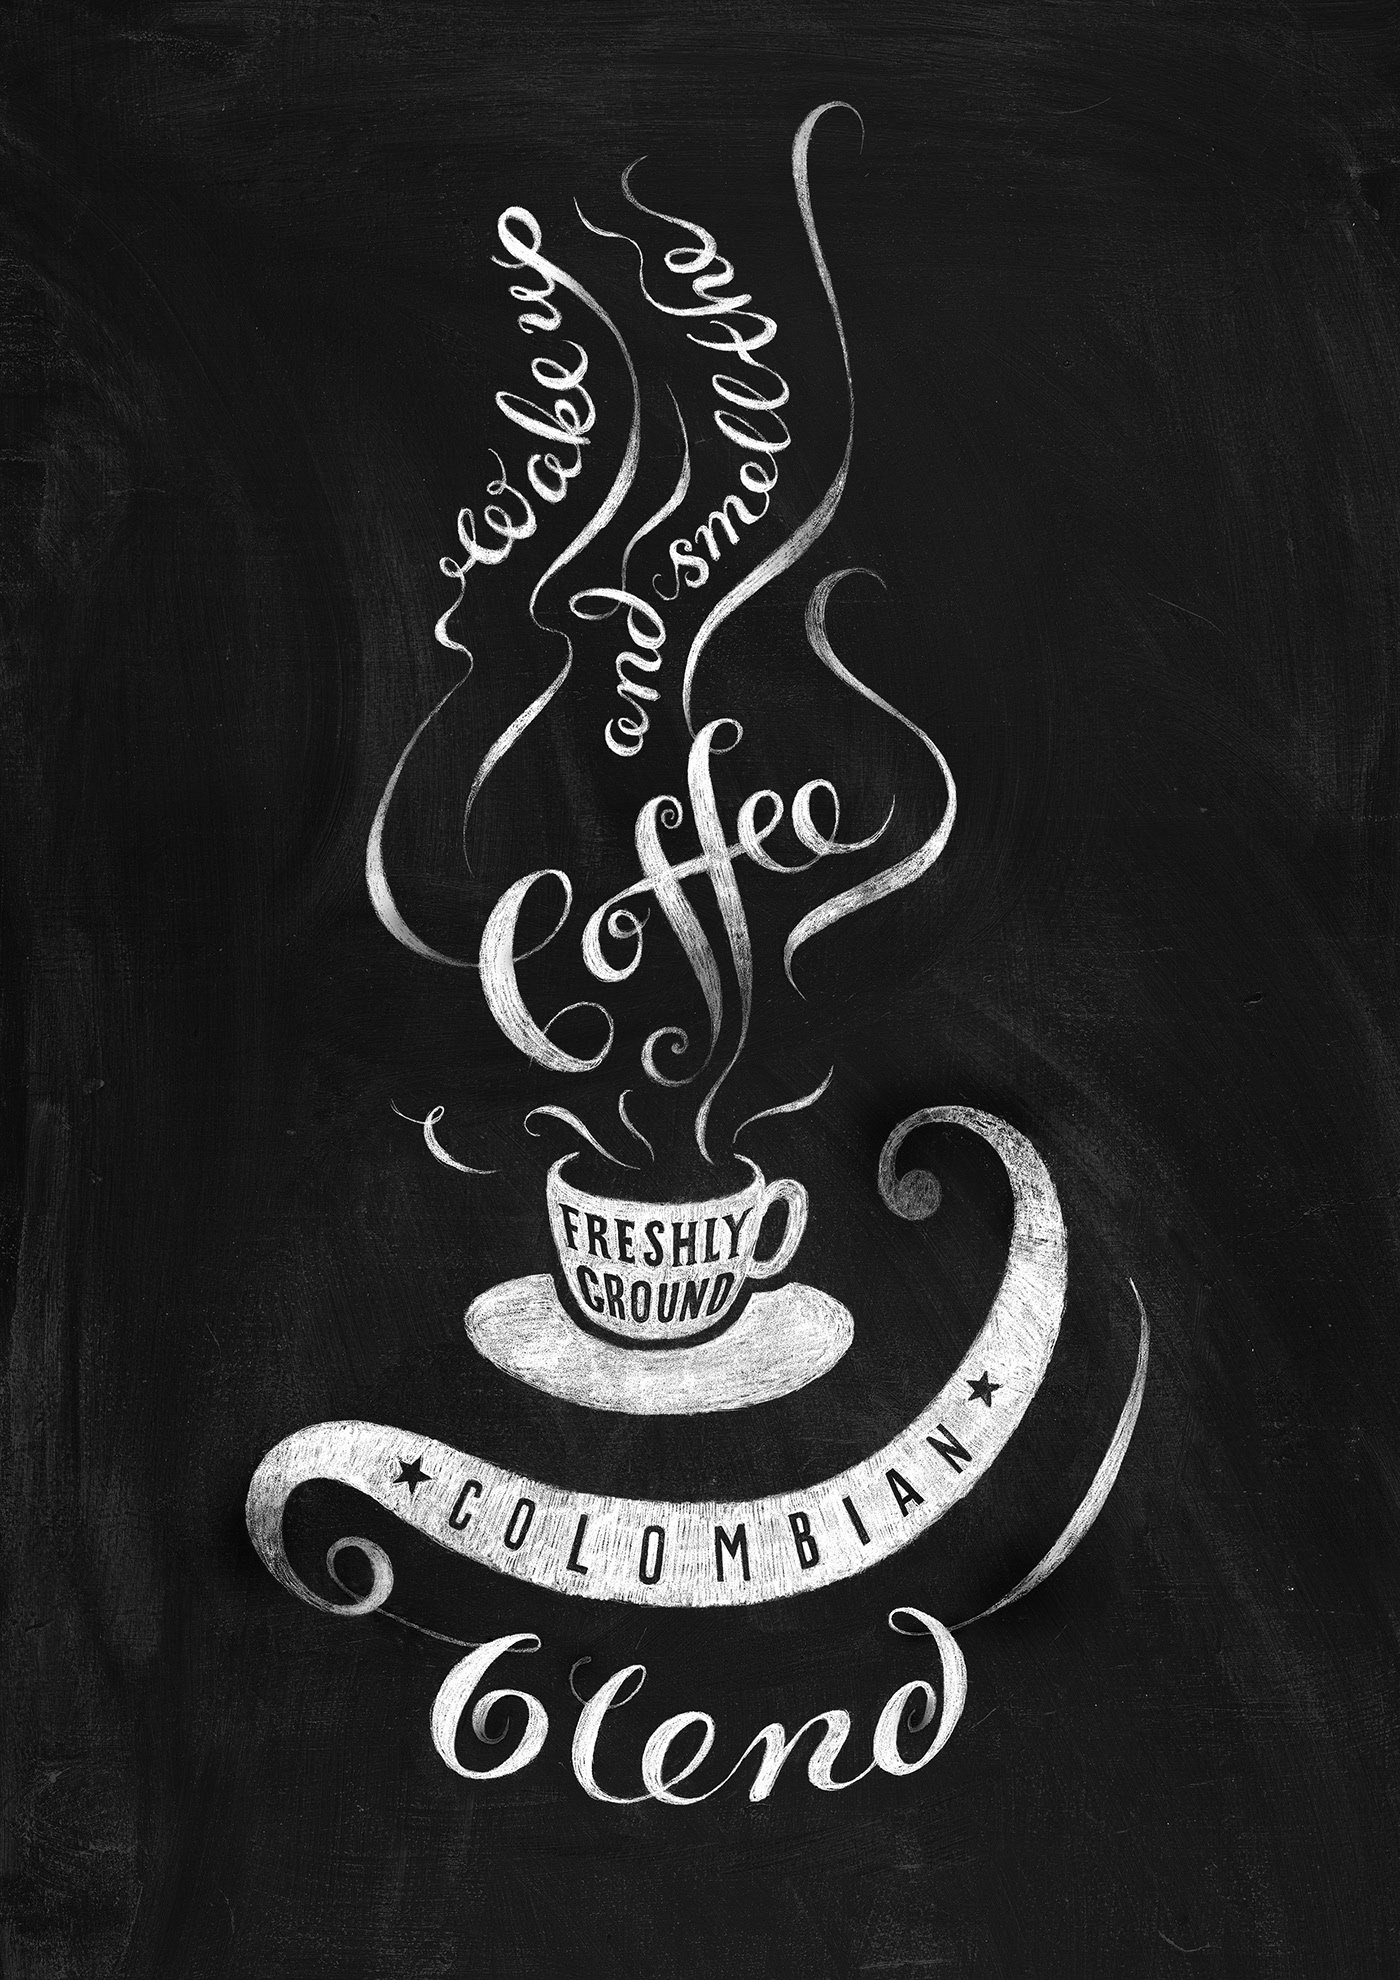 Wake up
and smell the
Coffee
FRESHLY
GROUND
COLOMBIAN
blend